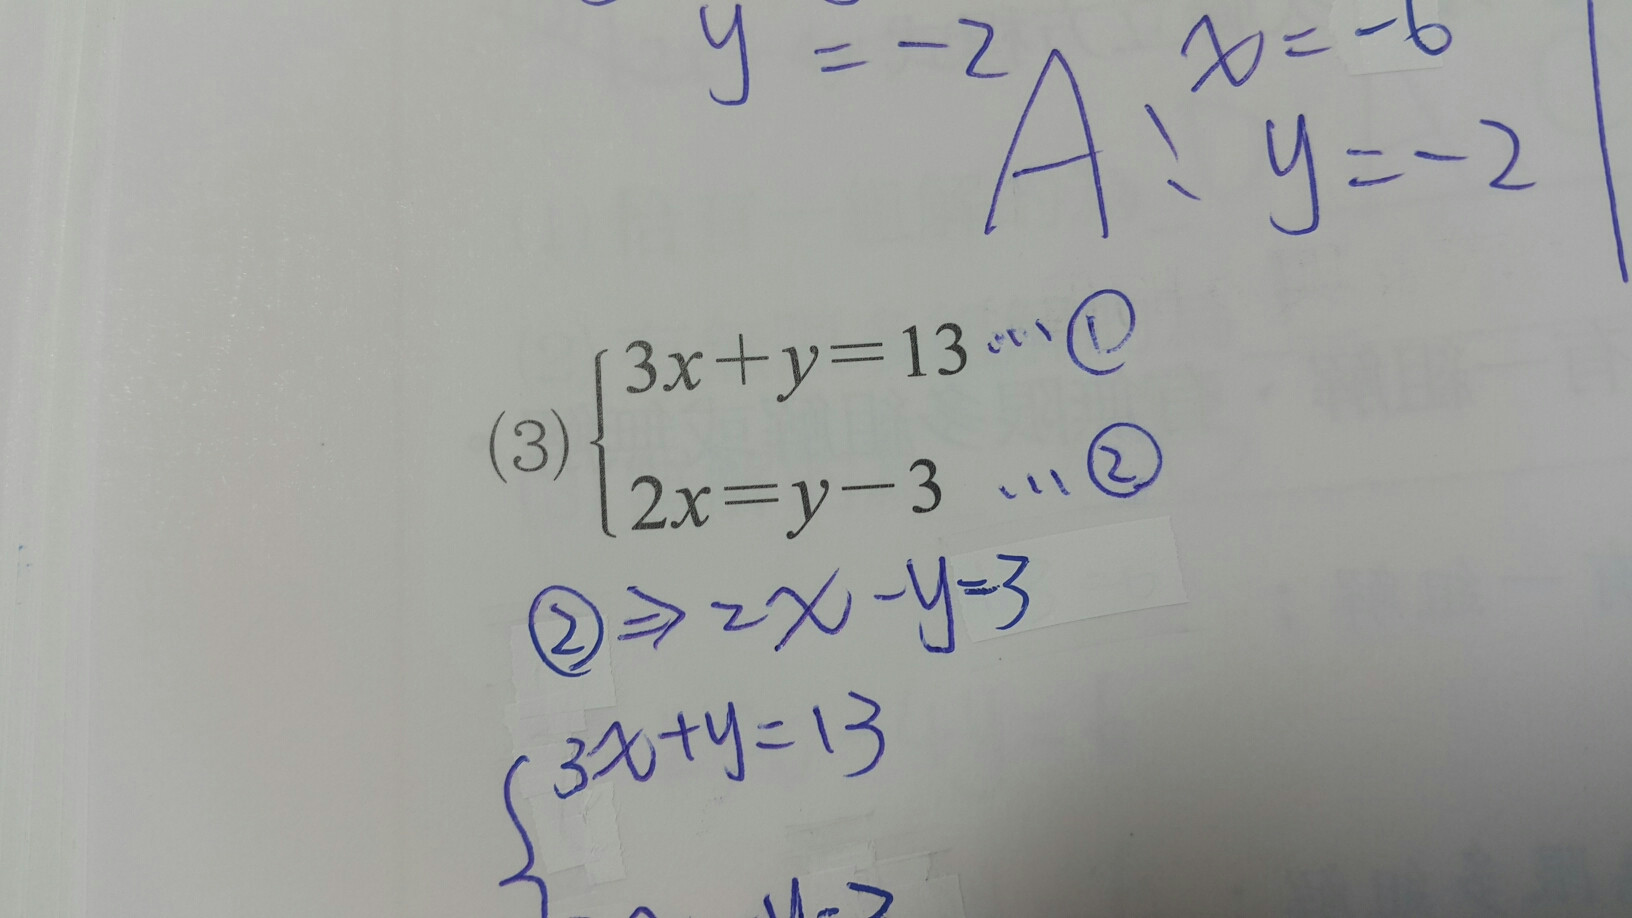 y = -2
x = -6
A: y = -2
(3) { 3x+y=13 ... ①
2x=y-3 ... ②
② ⇒ 2x -y=3
{ 3x+y=13